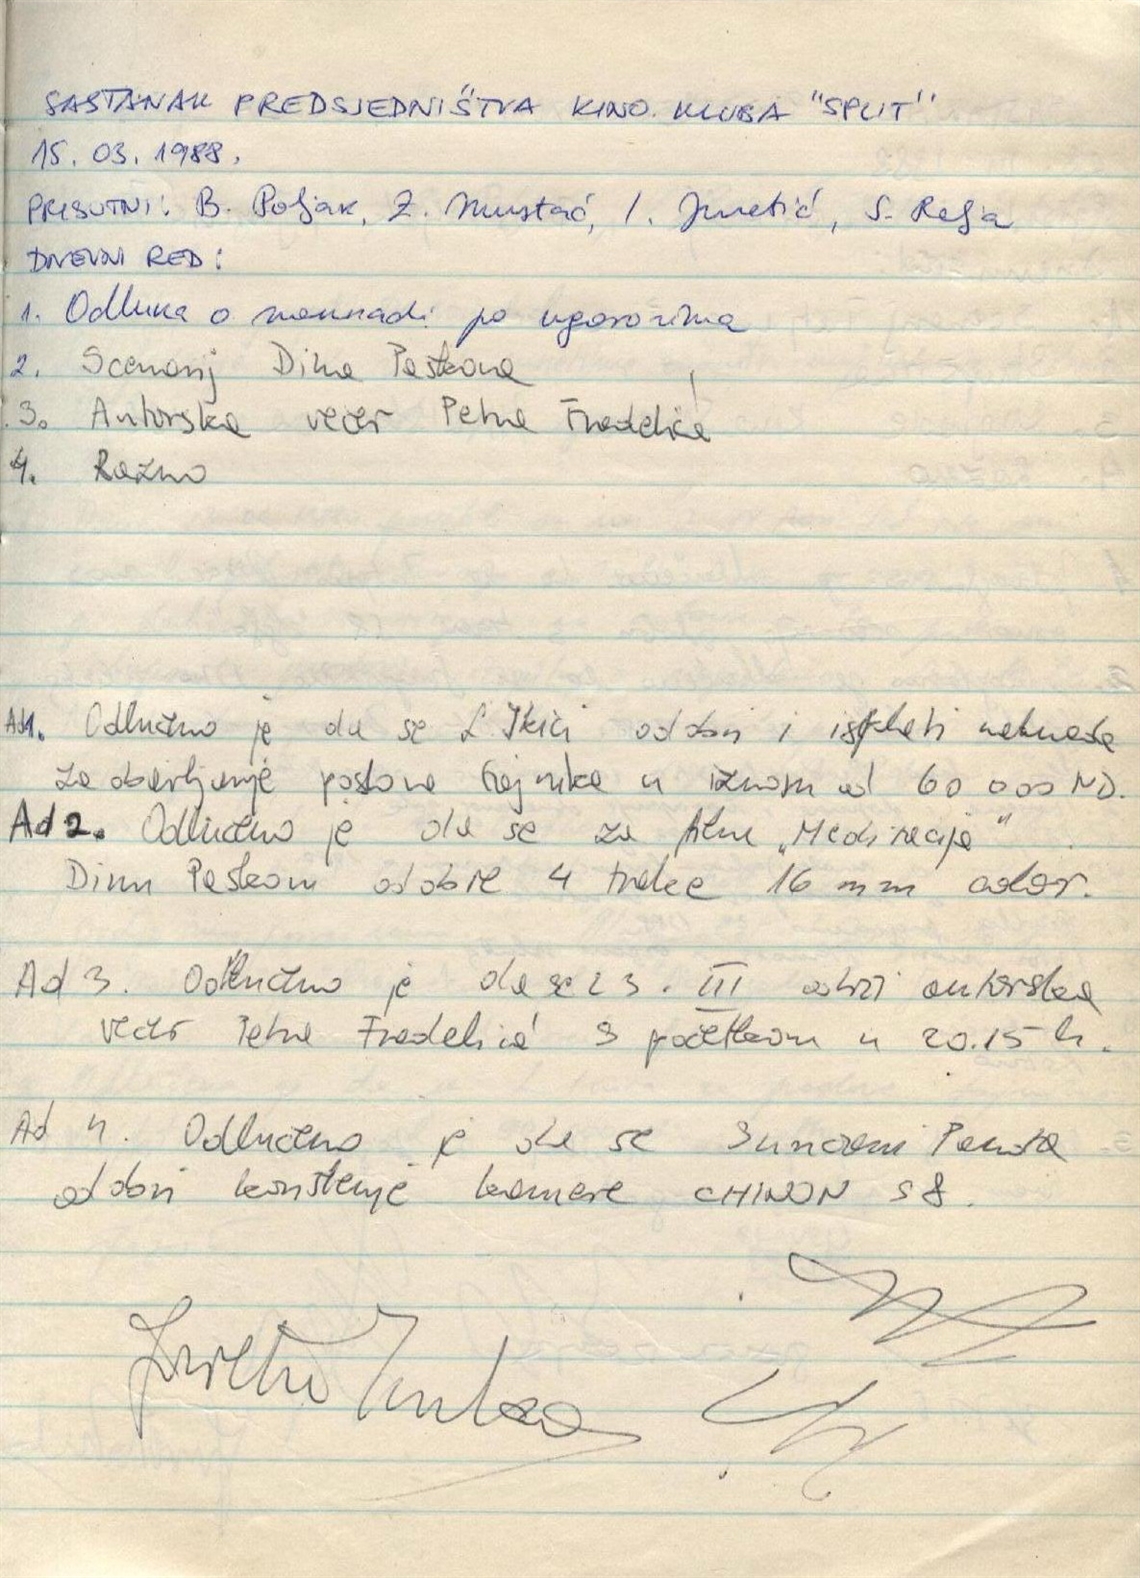 SASTANAK PREDSJEDNIŠTVA KINO. KLUBA "SPLIT"
15. 03. 1988.
PRISUTNI: B. Poljak, Z. Mustać, I. Juretić, S. Relja
DNEVNI RED:
1. Odluka o naknadi po ugovorima
2. Scenarij Dina Paskova
3. Autorska večer Petra Fradelića
4. Razno
Ad1. Odlučeno je da se L. Ikici odobri i isplati naknada
za obavljanje poslova tajnika u iznosu od 60 000 ND.
Ad 2. Odlučeno je da se za film „Meditacija"
Dinu odobre 4 trake 16 mm color.
Ad 3. Odlučeno je da se 23. III održi autorska
večer Petra Fradelića s početkom u 20.15 h.
Ad 4. Odlučeno je da se
odobri korištenje kamere CHINON S8.